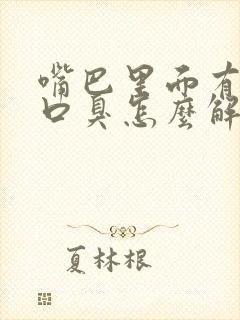 嘴巴里面有
口臭怎麼解
夏林根